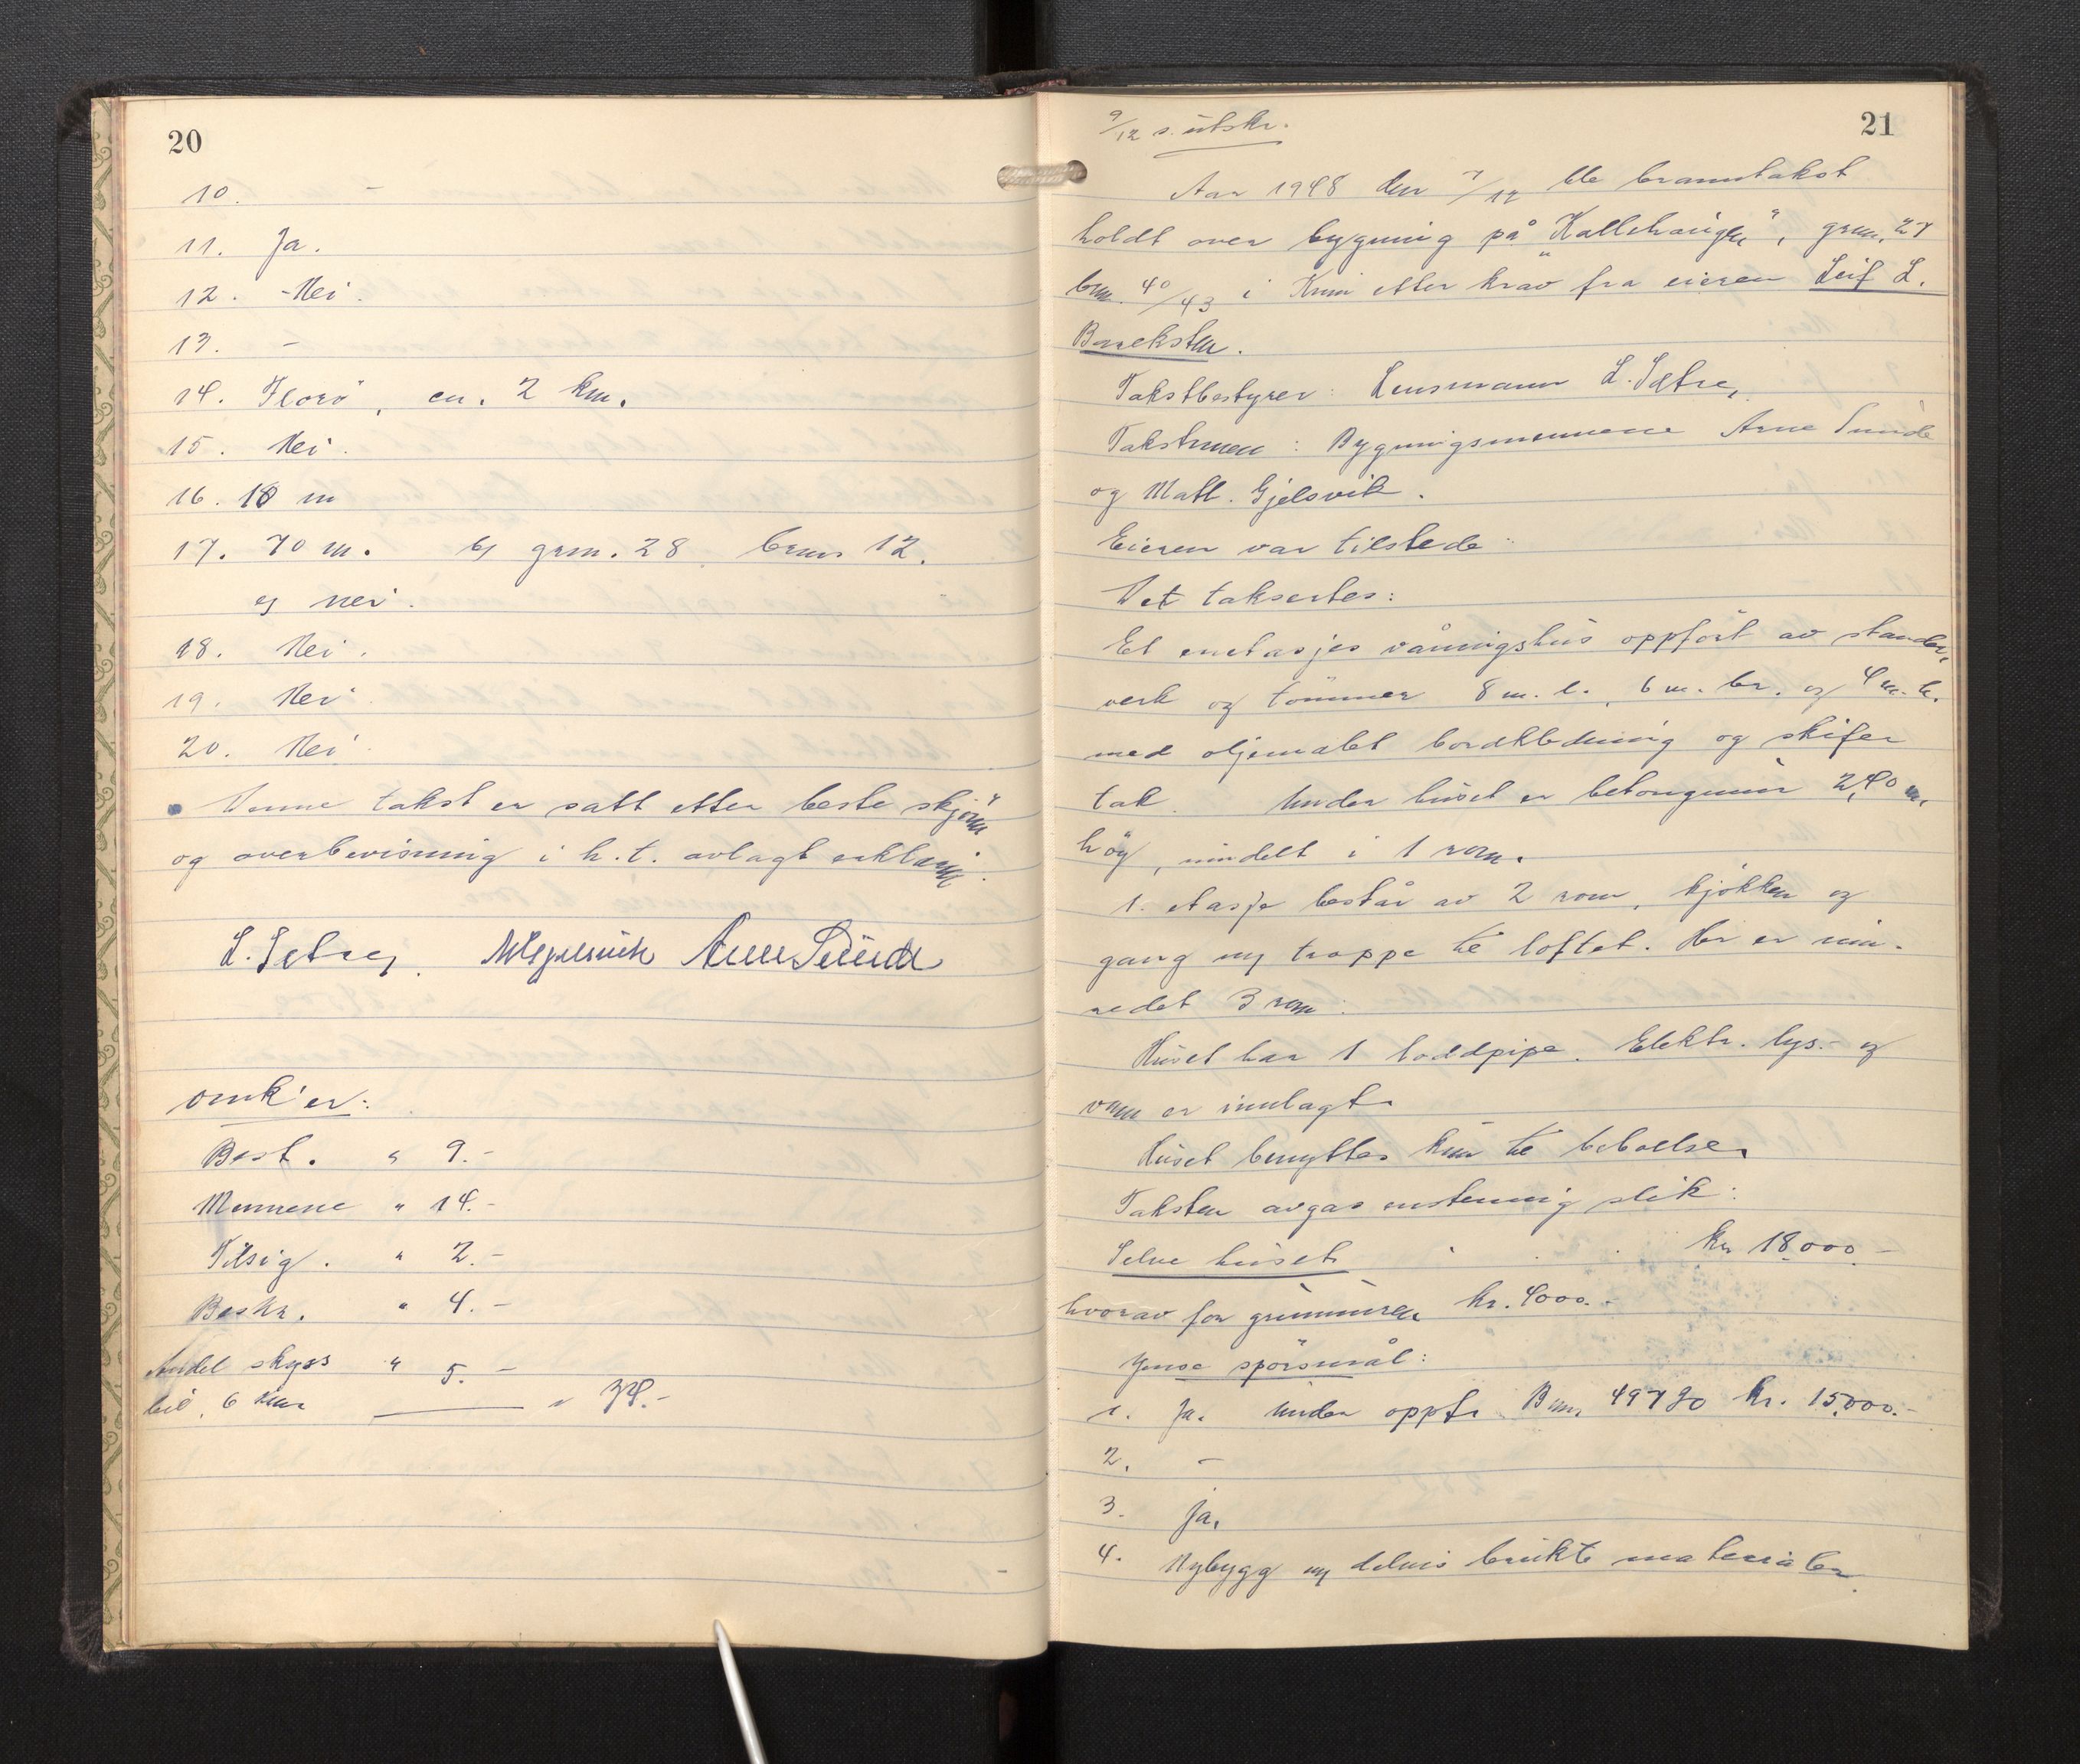 20
10. -
11. Ja.
12. - Nei.
13. -
14. Florö, ca. 2 km.
15. Nei.
16. 18 m
17. 70 m. b) grnr. 28 brnr 12.
c) nei.
18. Nei.
19. Nei.
20. Nei.
Denne takst er satt etter beste skjönn
og overbevisning i h.t. avlagt erklæring.
L. Sætre, MGjelsvik Arne Sunde
Omk'er:
Best. " 9.-
Mennene " 14.-
Tilsig. " 2.-
Beskr. " 4.-
Andel skyss " 5.-
bil, 6 km " 34.-
21
9/12 s. utskr.
Aar 1948 den 7/12 ble branntakst
holdt over bygning på "Kallehaugen", grnr. 27
brnr. 40/43 i Kinn etter krav fra eieren Leif L.
Bareksten.
Takstbestyrer: Lensmann L. Sætre,
Takstmenn: Bygningsmennene Arne Sunde
og Matt. Gjelsvik.
Eieren var tilstede.
Det taksertes:
Et enetasjes våningshus oppfört av stender,
verk og tömmer 8 m. l., 6 m. br. og 4 m. h.
med oljemalet bordkledning og skifer
tak. Under huset er betongmur 2,40 m.
höy, inndelt i 1 rom.
1. etasje består av 2 rom, kjökken og
gang m/ trappe til loftet. Her er inn-
redet 3 rom.
Huset har 1 loddpipe. Elektr. lys.- og
vann er innlagt.
Huset benyttes kun til beboelse.
Taksten avgas enstemmig slik:
Selve huset . . . kr 18.000.-
hvorav for grunnmuren kr. 4000.-
Ymse spörsmål:
1. Ja. Under oppf. Bnr. 49780 kr. 15.000.-
2. -
3. Ja.
4. Nybygg m/ delvis brukte materialer.